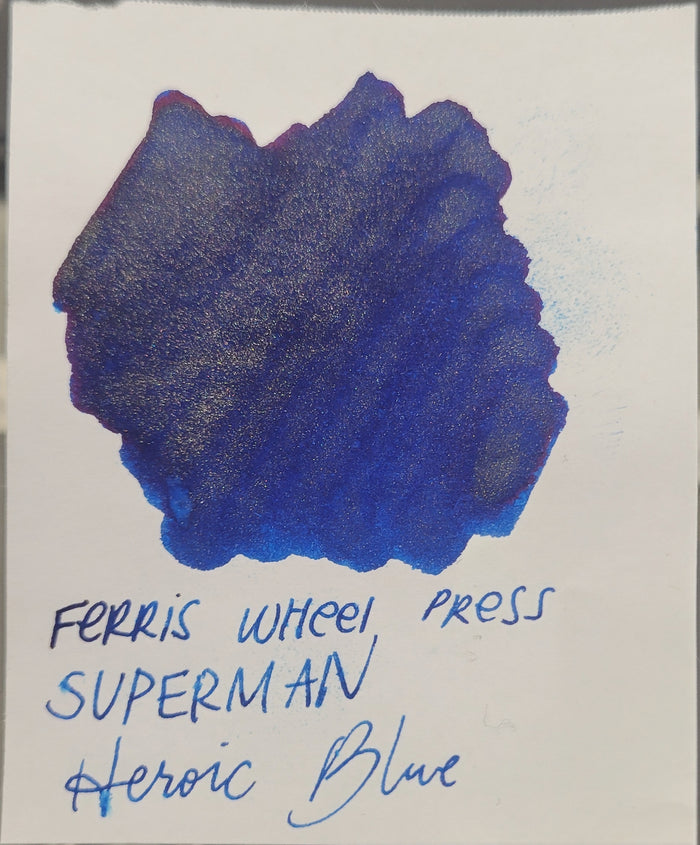 FeRRiS WHeel PReSS
SUPERMAN
Heroic Blue